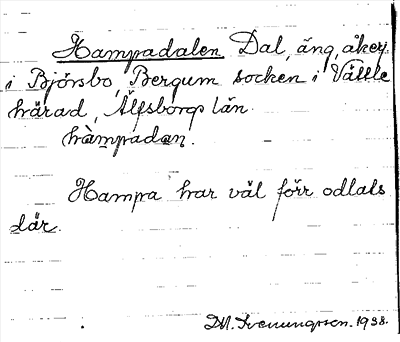 Hampadalen Dal, äng, åker
i Björsbo, Bergum socken i Vättle
härad, Älfsborgs län.
hàmpadan.
Hampa har väl förr odlats
där.
M. Svenungsson. 1938.